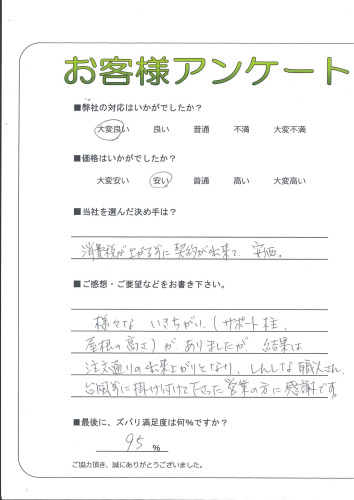 お客様アンケート
■弊社の対応はいかがでしたか?
大変良い 良い 普通 不満 大変不満
■価格はいかがでしたか?
大変安い 安い 普通 高い 大変高い
■当社を選んだ決め手は?
消費税が上がる前に契約が出来て、安価。
■ご感想・ご要望などをお書き下さい。
様々な いきちがい(サポート柱、
屋根の高さ)が ありましたが、結果は
注文通りの出来上がりとなり、しんしな職人さん、
台風前に掛け付けて下さった営業の方に感謝です。
■最後に、ズバリ満足度は何%ですか?
95 %
ご協力頂き、誠にありがとうございました。